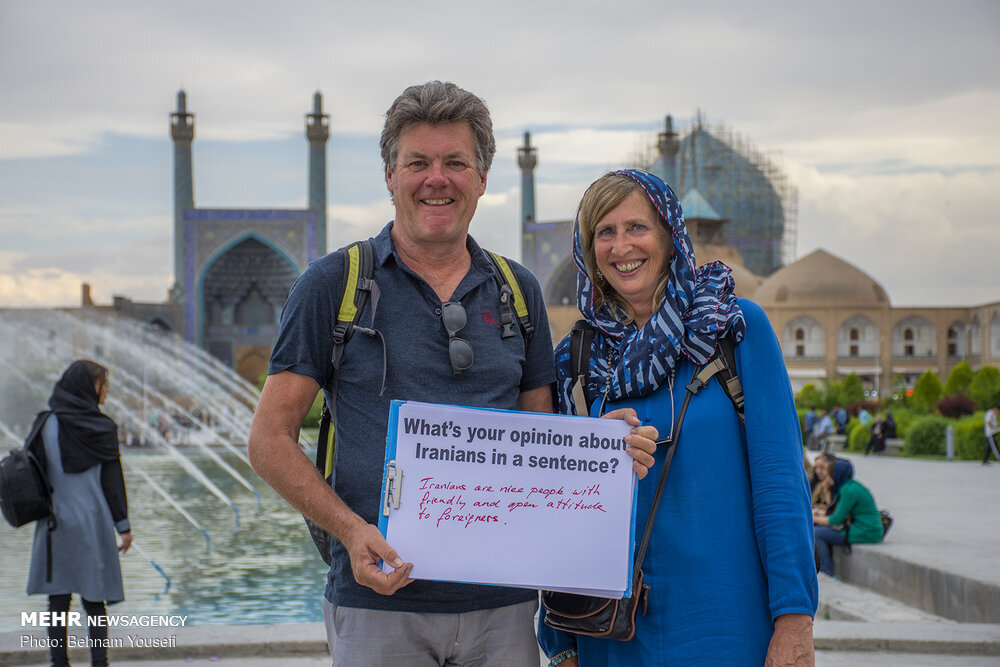 What's your opinion about
Iranians in a sentence?
Iranians are nice people with
friendly and open attitude
to foreigners.
MEHR NEWSAGENCY
Photo: Behnam Yousefi